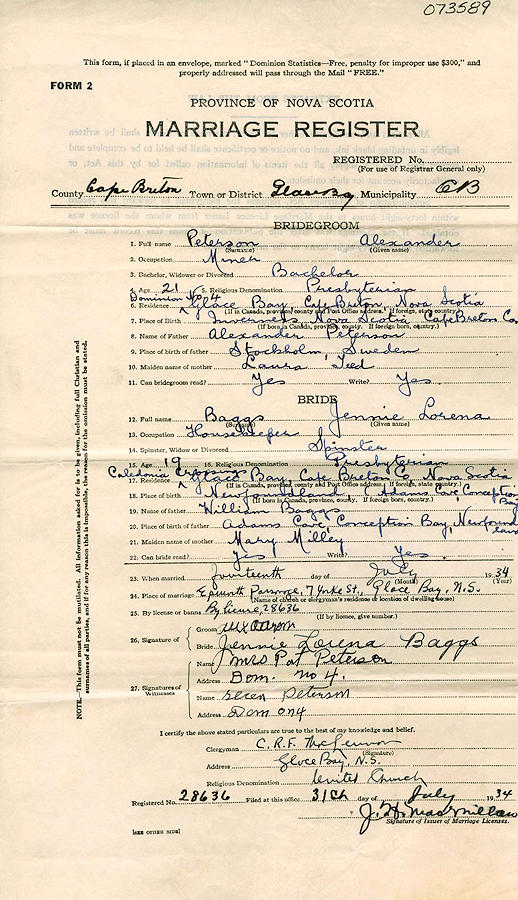 073589
This form, if placed in an envelope, marked "Dominion Statistics—Free, penalty for improper use $300," and
properly addressed will pass through the Mail "FREE."
FORM 2
PROVINCE OF NOVA SCOTIA
MARRIAGE REGISTER
REGISTERED No.
(For use of Registrar General only)
County Cape Breton Town or District Glace Bay Municipality CB
BRIDEGROOM
1. Full name Peterson Alexander
(Surname) (Given name)
2. Occupation Miner
3. Bachelor, Widower or Divorced Bachelor
4. Age 21 5. Religious Denomination Presbyterian
Dominion No 4
6. Residence Glace Bay, Cape Breton, Nova Scotia
(If in Canada, province, county and Post Office address. If foreign, state country.)
7. Place of Birth Inverness Nova Scotia, Cape Breton Co
(If born in Canada, province, county. If foreign born, country.)
8. Name of Father Alexander Peterson
9. Place of birth of father Stockholm, Sweden
10. Maiden name of mother Laura
11. Can bridegroom read? Yes Write? Yes
BRIDE
12. Full name Baggs Jennie Lorena
(Surname) (Given name)
13. Occupation Housekeeper
14. Spinster, Widow or Divorced Spinster
15. Age 19 16. Religious Denomination Presbyterian
Caledonia Crossing
17. Residence Glace Bay, Cape Breton Co Nova Scotia
(If in Canada, province, county and Post Office address. If foreign, state country.)
18. Place of birth Newfoundland (Adams Cove Conception Bay
(If born in Canada, province, county. If foreign born, country.)
19. Name of father William Baggs
20. Place of birth of father Adams Cove, Conception Bay, Newfoundland
21. Maiden name of mother Mary Milley
22. Can bride read? Yes Write? Yes
23. When married fourteenth day of July 1934
(Month) (Year)
24. Place of marriage Epworth Parsonage, 7 Yorke St., Glace Bay, N.S.
(Name of church or clergyman's residence or location of dwelling house)
25. By license or banns By license, 28636
(If by license, give number.)
26. Signature of
Groom
Bride Jennie Lorena Baggs
27. Signatures of Witnesses
Name Mrs Pat Peterson
Address Dom. No 4.
Name Peterson
Address Dom No 4
I certify the above stated particulars are true to the best of my knowledge and belief.
Clergyman C. R. F.
(Signature)
Address Glace Bay, N.S.
Religious Denomination United Church
Registered No. 28636 Filed at this office 31st day of July 1934
J. H. MacMillan
Signature of Issuer of Marriage Licenses.
[SEE OTHER SIDE]
NOTE.—This form must not be mutilated. All information asked for is to be given, including full Christian and
surnames of all parties, and if for any reason this is impossible, the reason for the omission must be stated.